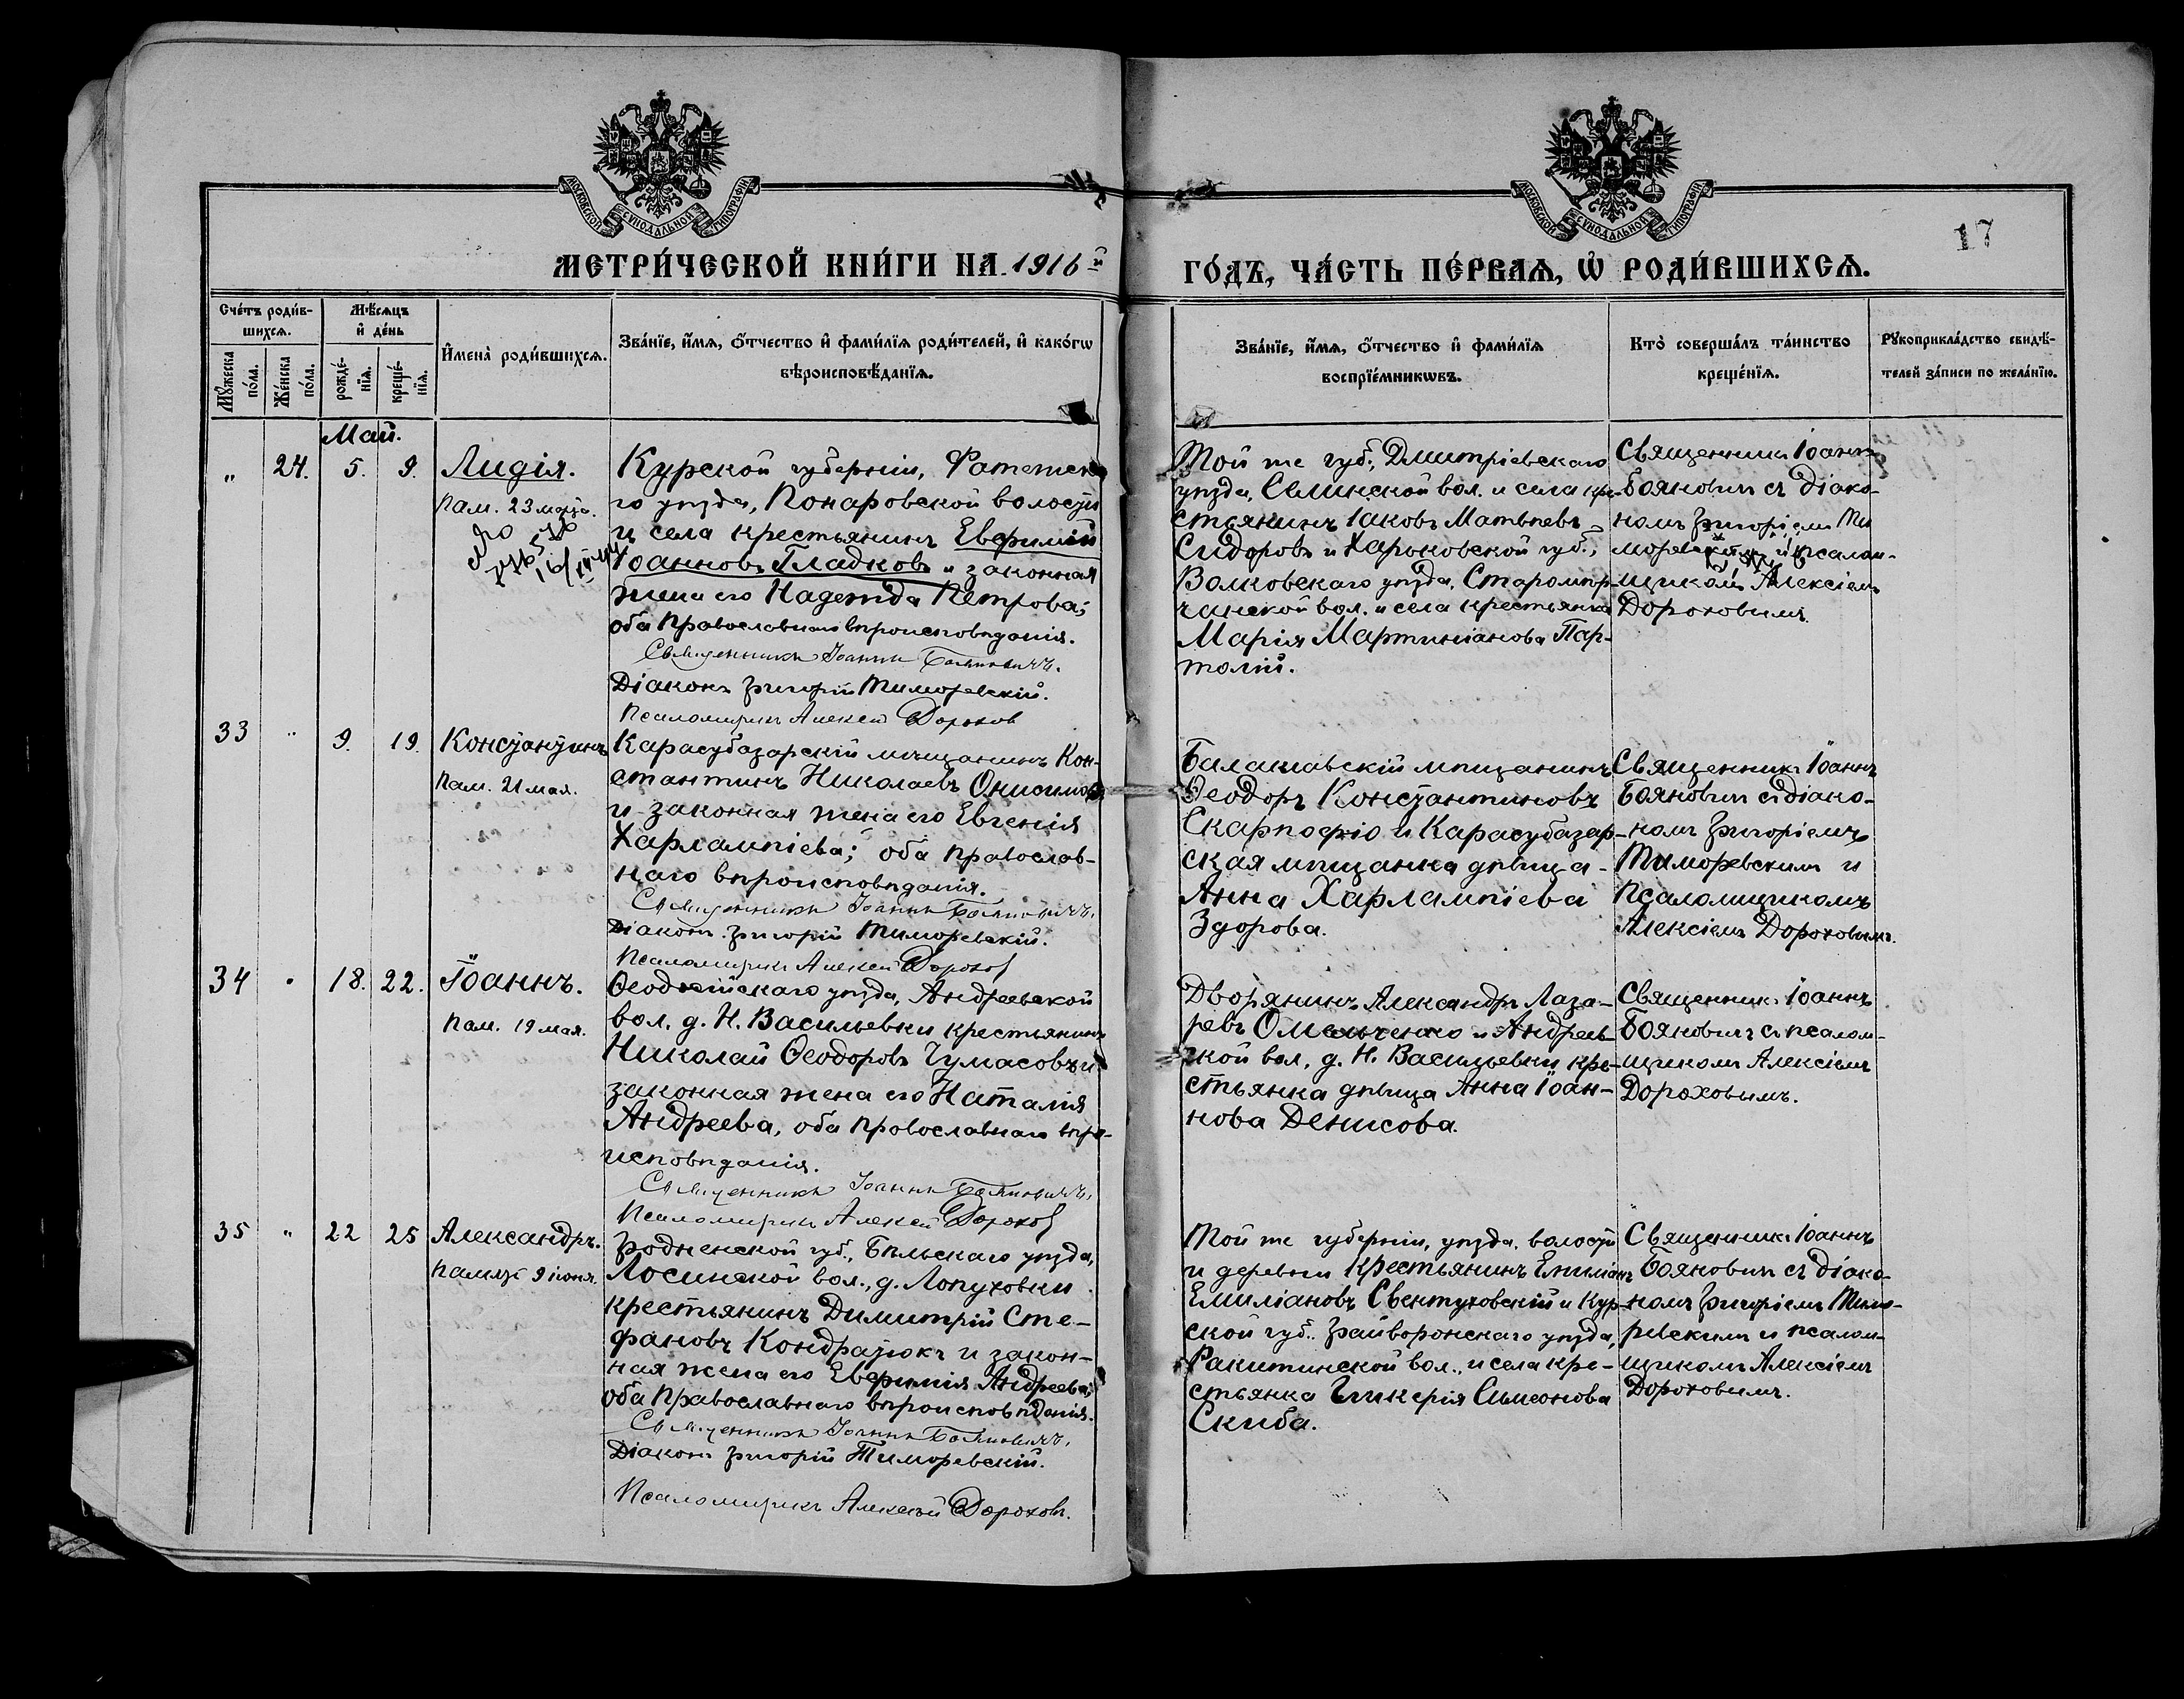 МОСКОВСКОЙ СѴНОДАЛЬНОЙ ТИПОГРАФІИ
МОСКОВСКОЙ СѴНОДАЛЬНОЙ ТИПОГРАФІИ
17
МЕТРИ́ЧЕСКОЙ КНИ́ГИ НА 1916й
ГО́ДЪ, ЧА́СТЬ ПЕ́РВАѦ, Ѡ҆ РОДИ́ВШИХСѦ.
Сче́тъ роди́в-
шихсѧ.
Мꙋ́жеска по́ла.
Же́нска по́ла.
Мѣ́сѧцъ
и҆ де́нь
рожде́-
нїѧ.
креще́-
нїѧ.
И҆мена̀ роди́вшихсѧ.
Зва́нїе, и҆́мѧ, ѻ҆́тчество и҆ фами́лїѧ роди́телей, и҆ како́гѡ
вѣроисповѣ́данїѧ.
Зва́нїе, и҆́мѧ, ѻ҆́тчество и҆ фами́лїѧ
воспрїе́мникѡвъ.
Кто̀ соверша́лъ та́инство
креще́нїѧ.
Рꙋкоприкла́дство свидѣ́-
телей за́писи по жела́нїю.
Май.
„ 24. 5. 9. Лидія.
Пам. 23 марта.
Курской губерніи, Фатежска
го уѣзда, Понаровской волости
и села крестьянинъ Евфимій
Іоанновъ Гладковъ и законная
жена его Надежда Петрова;
оба Православнаго вѣроисповѣданія.
Священникъ Іоаннъ Бояновичъ.
Діаконъ Григорій Тиморевскій.
Псаломщикъ Алексѣй Дороховъ
Той же губ., Дмитріевскаго
уѣзда, Селинской вол. и села кре-
стьянинъ Іаковъ Матвѣевъ
Сидоровъ и Харьковской губ.,
Волковскаго уѣзда, Старомер-
чинской вол. и села крестьянка
Марія Мартиніанова Пар-
толій.
Священникъ Іоаннъ
Бояновичъ съ діако-
номъ Григоріемъ Ти
моревскимъ и псалом-
щикомъ Алексіемъ
Дороховымъ.
33 „ 9. 19. Константинъ
Пам. 21 мая.
Карасубазарскій мѣщанинъ Кон-
стантинъ Николаевъ Онисимовъ
и законная жена его Евгенія
Харлампіева; оба православ-
наго вѣроисповѣданія.
Священникъ Іоаннъ Бояновичъ.
Діаконъ Григорій Тиморевскій.
Псаломщикъ Алексѣй Дорохов
Балашавскій мѣщанинъ
Ѳеодоръ Константиновъ
Скарпофіо и Карасубазар-
ская мѣщанка дѣвица
Анна Харлампіева
Здорова.
Священникъ Іоаннъ
Бояновичъ съ діако-
номъ Григоріемъ
Тиморевскимъ и
псаломщикомъ
Алексіемъ Дороховымъ.
34 „ 18. 22. Іоаннъ.
Пам. 19 мая.
Ѳеодосійскаго уѣзда, Андреевской
вол. д. Н. Васильевки крестьянинъ
Николай Ѳеодоровъ Чумасовъ и
законная жена его Наталія
Андреева, оба православнаго вѣро-
исповѣданія.
Священникъ Іоаннъ Бояновичъ.
Псаломщикъ Алексѣй Дорохов
Дворянинъ Александръ Лаза-
ревъ Омельченко и Андреев-
ской вол., д. Н. Васильевки кре-
стьянка дѣвица Анна Іоан-
нова Денисова.
Священникъ Іоаннъ
Бояновичъ съ псалом-
щикомъ Алексіемъ
Дороховымъ.
35 „ 22 25 Александръ.
Память 9 іюня.
Гродненской губ., Бѣльскаго уѣзда,
Лосинской вол., д. Лопуховки
крестьянинъ Димитрій Сте-
фановъ Кондратюкъ и закон-
ная жена его Евфимія Андреева;
оба православнаго вѣроисповѣданія.
Священникъ Іоаннъ Бояновичъ.
Діаконъ Григорій Тиморевскій.
Псаломщикъ Алексѣй Дороховъ.
Той же губерніи, уѣзда, волости
и деревни крестьянинъ Емиліанъ
Емиліановъ Свентуховскій и Кур-
ской губ. Грайворонскаго уѣзда,
Ракитинской вол., и села кре-
стьянка Гликерія Симеонова
Скиба.
Священникъ Іоаннъ
Бояновичъ съ діако-
номъ Григоріемъ Тимо-
ревскимъ и псалом-
щикомъ Алексіемъ
Дороховымъ.